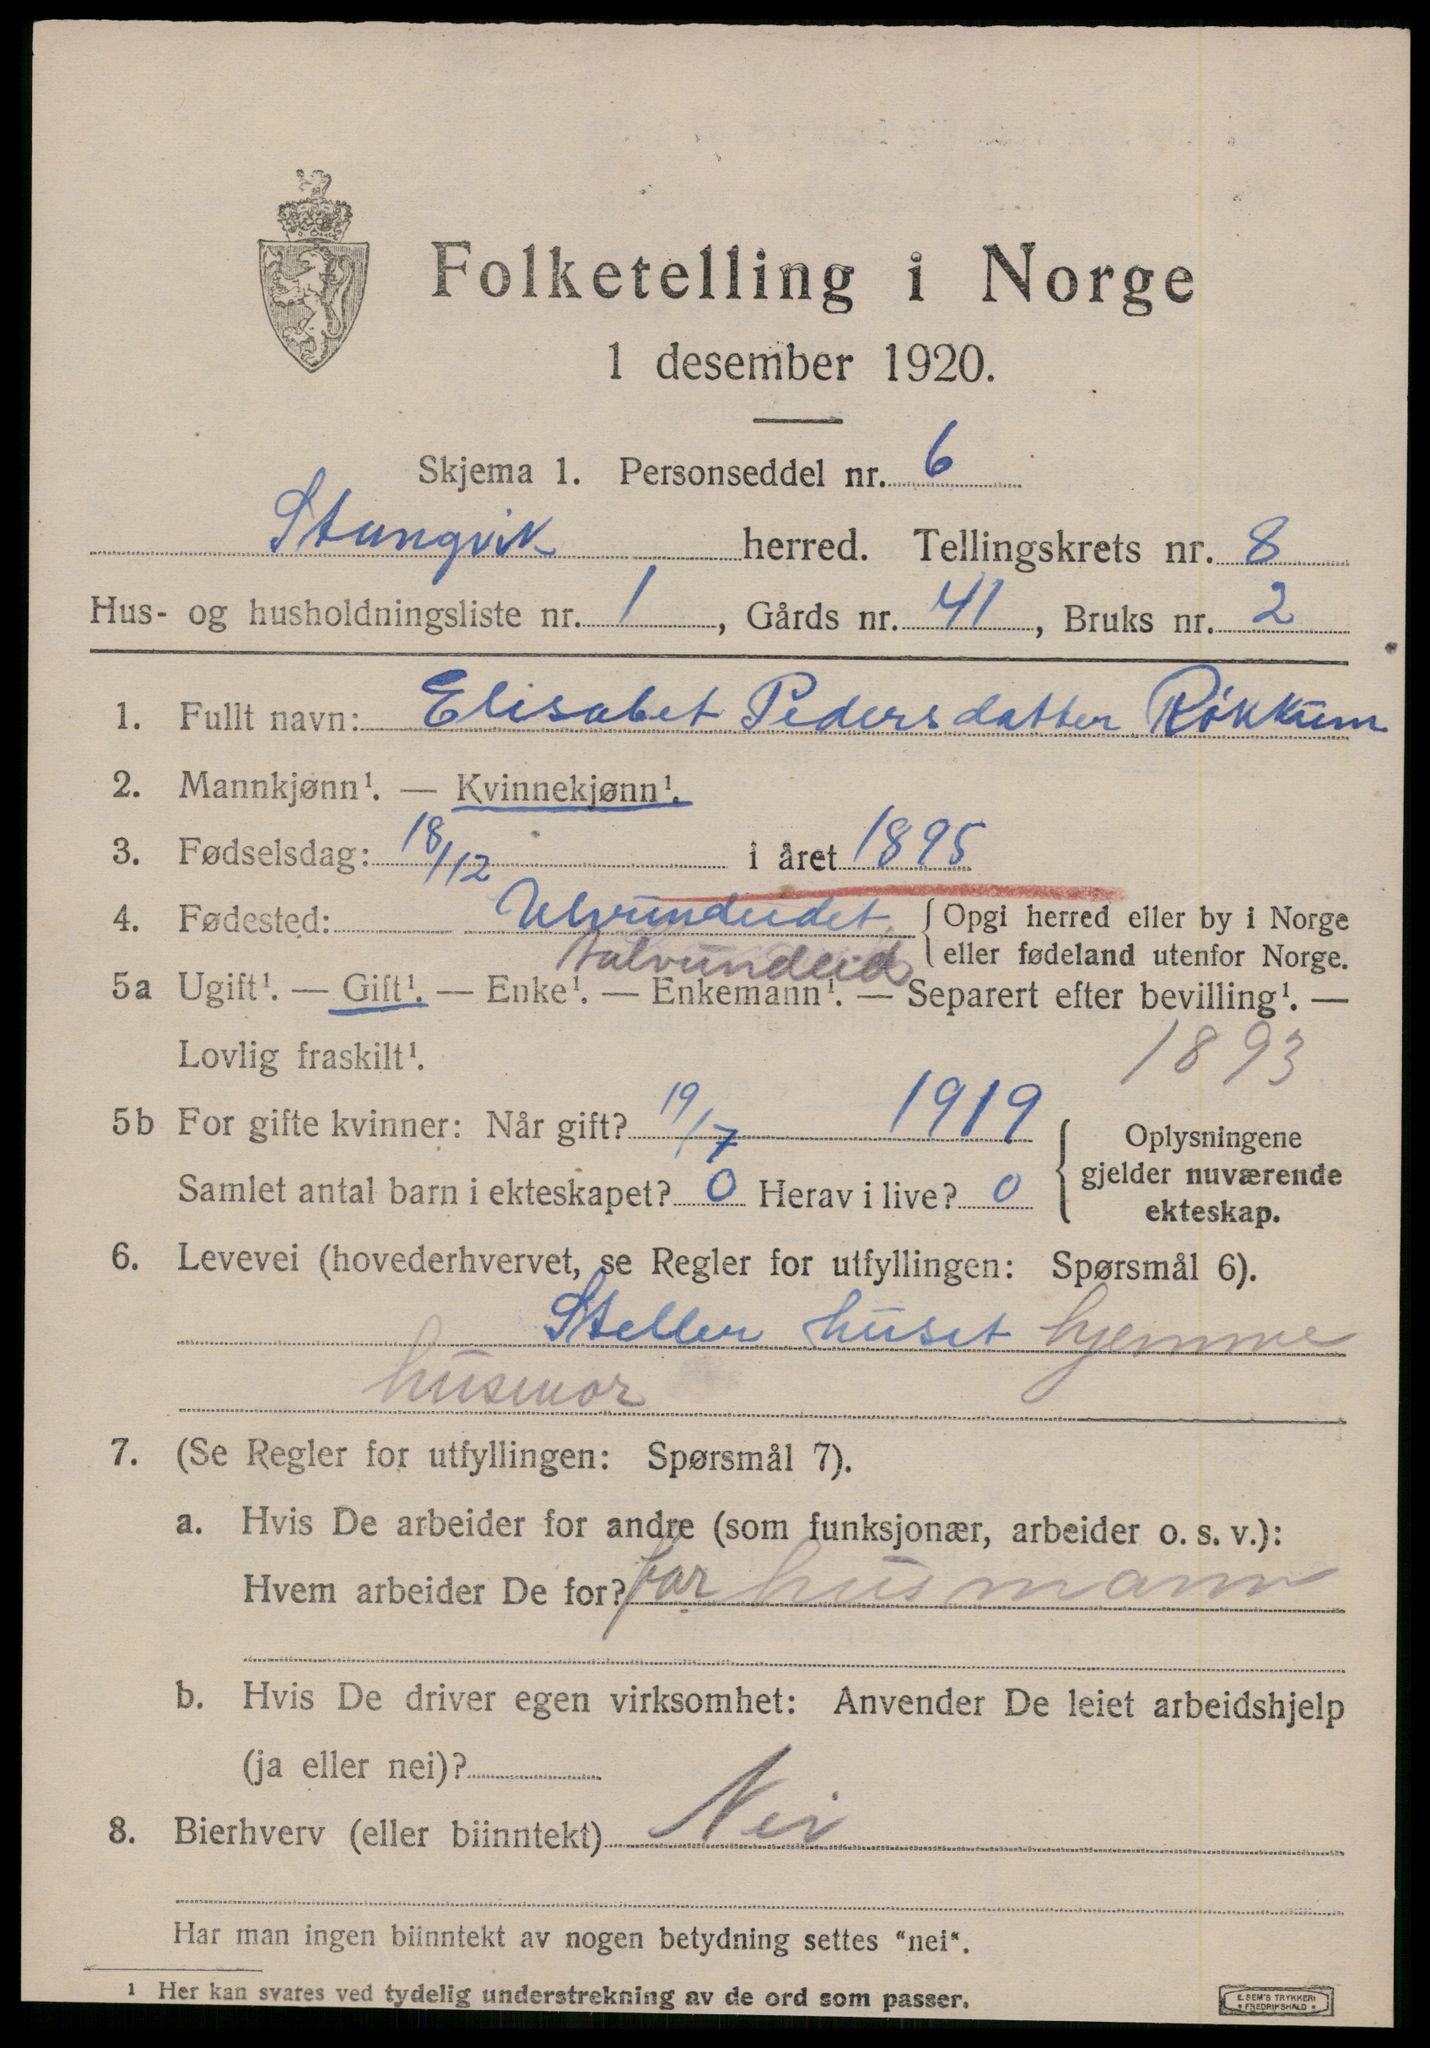 Folketelling i Norge
1 desember 1920.
Skjema 1. Personseddel nr. 6
Stangvik herred. Tellingskrets nr. 8
Hus- og husholdningsliste nr. 1, Gårds nr. 41, Bruks nr. 2
1. Fullt navn: Elisabet Pedersdatter Røkkum
2. Mannkjønn¹. — Kvinnekjønn¹.
3. Fødselsdag: 18/12 i året 1895
4. Fødested: Ulvundeidet { Opgi herred eller by i Norge
Aalvundeid eller fødeland utenfor Norge.
5a Ugift¹. — Gift¹. — Enke¹. — Enkemann¹. — Separert efter bevilling¹. —
Lovlig fraskilt¹. 1893
5b For gifte kvinner: Når gift? 19/7 1919
Samlet antal barn i ekteskapet? 0 Herav i live? 0
{ Oplysningene
gjelder nuværende
ekteskap.
6. Levevei (hovederhvervet, se Regler for utfyllingen: Spørsmål 6).
Steller huset hjemme
husmor
7. (Se Regler for utfyllingen: Spørsmål 7).
a. Hvis De arbeider for andre (som funksjonær, arbeider o. s. v.):
Hvem arbeider De for? for husmann
b. Hvis De driver egen virksomhet: Anvender De leiet arbeidshjelp
(ja eller nei)?
8. Bierhverv (eller biinntekt) Nei
Har man ingen biinntekt av nogen betydning settes "nei".
¹ Her kan svares ved tydelig understrekning av de ord som passer.
E. SEM'S TRYKKERI
* FREDRIKSHALD *